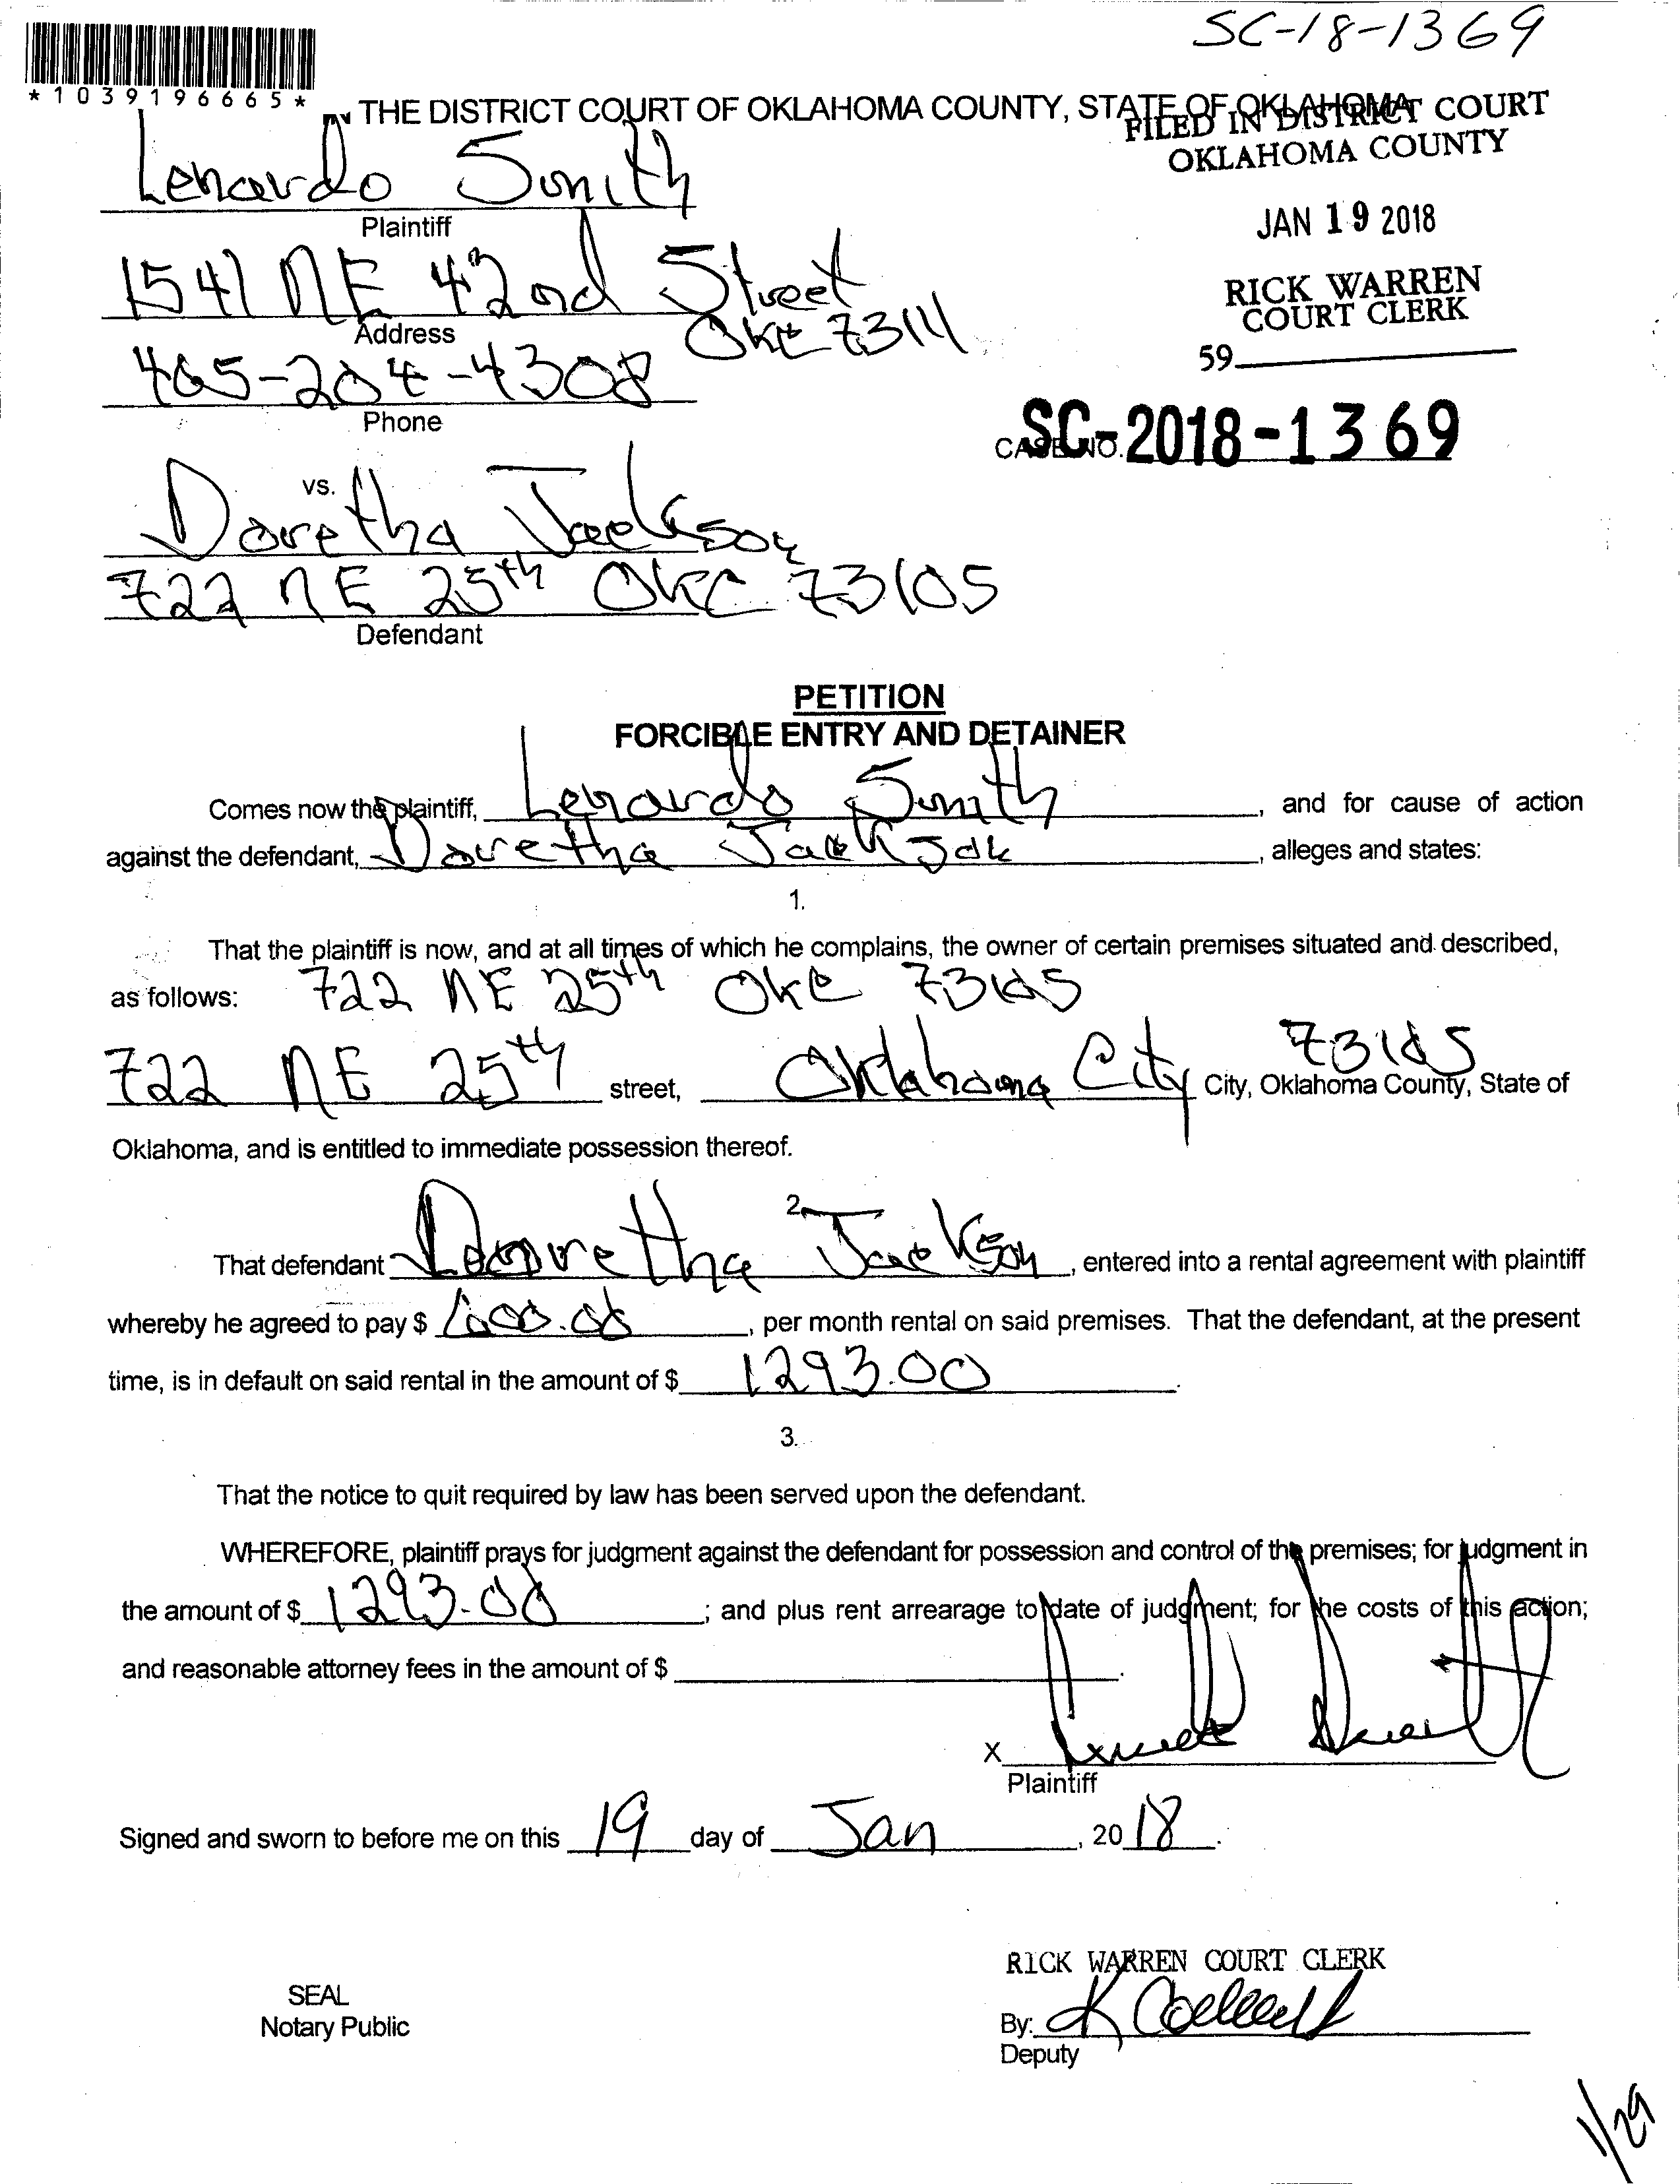 SC-18-1369
*1039196665*
IN THE DISTRICT COURT OF OKLAHOMA COUNTY, STATE OF OKLAHOMA
FILED IN DISTRICT COURT
OKLAHOMA COUNTY
Lenardo Smith
Plaintiff
JAN 19 2018
1541 NE 42nd Street
RICK WARREN
COURT CLERK
Address
OKC 73111
59
405-204-4308
Phone
CASE NO. SC-2018-1369
vs.
Doretha Jackson
722 NE 25th OKC 73105
Defendant
PETITION
FORCIBLE ENTRY AND DETAINER
Comes now the plaintiff, Lenardo Smith, and for cause of action
against the defendant, Doretha Jackson, alleges and states:
1.
That the plaintiff is now, and at all times of which he complains, the owner of certain premises situated and described,
as follows: 722 NE 25th OKC 73105
722 NE 25th street, Oklahoma City 73105 City, Oklahoma County, State of
Oklahoma, and is entitled to immediate possession thereof.
2.
That defendant Doretha Jackson, entered into a rental agreement with plaintiff
whereby he agreed to pay $ 600.00, per month rental on said premises. That the defendant, at the present
time, is in default on said rental in the amount of $ 1293.00.
3.
That the notice to quit required by law has been served upon the defendant.
WHEREFORE, plaintiff prays for judgment against the defendant for possession and control of the premises; for judgment in
the amount of $ 1293.00; and plus rent arrearage to date of judgment; for the costs of this action;
and reasonable attorney fees in the amount of $
.
X
Plaintiff
Signed and sworn to before me on this 19 day of Jan, 2018.
RICK WARREN COURT CLERK
SEAL
Notary Public
By:
Deputy
1/29